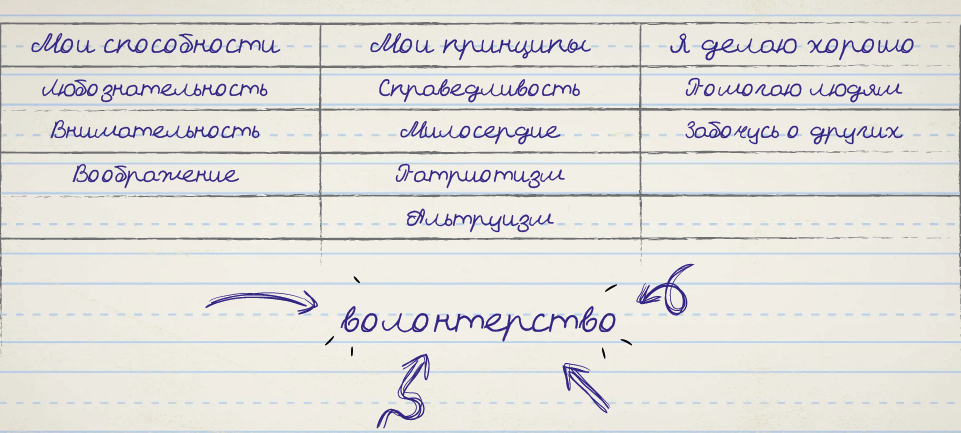 Мои способности Мои принципы Я делаю хорошо
Любознательность Справедливость Помогаю людям
Внимательность Милосердие Забочусь о других
Воображение Патриотизм
Альтруизм
волонтерство